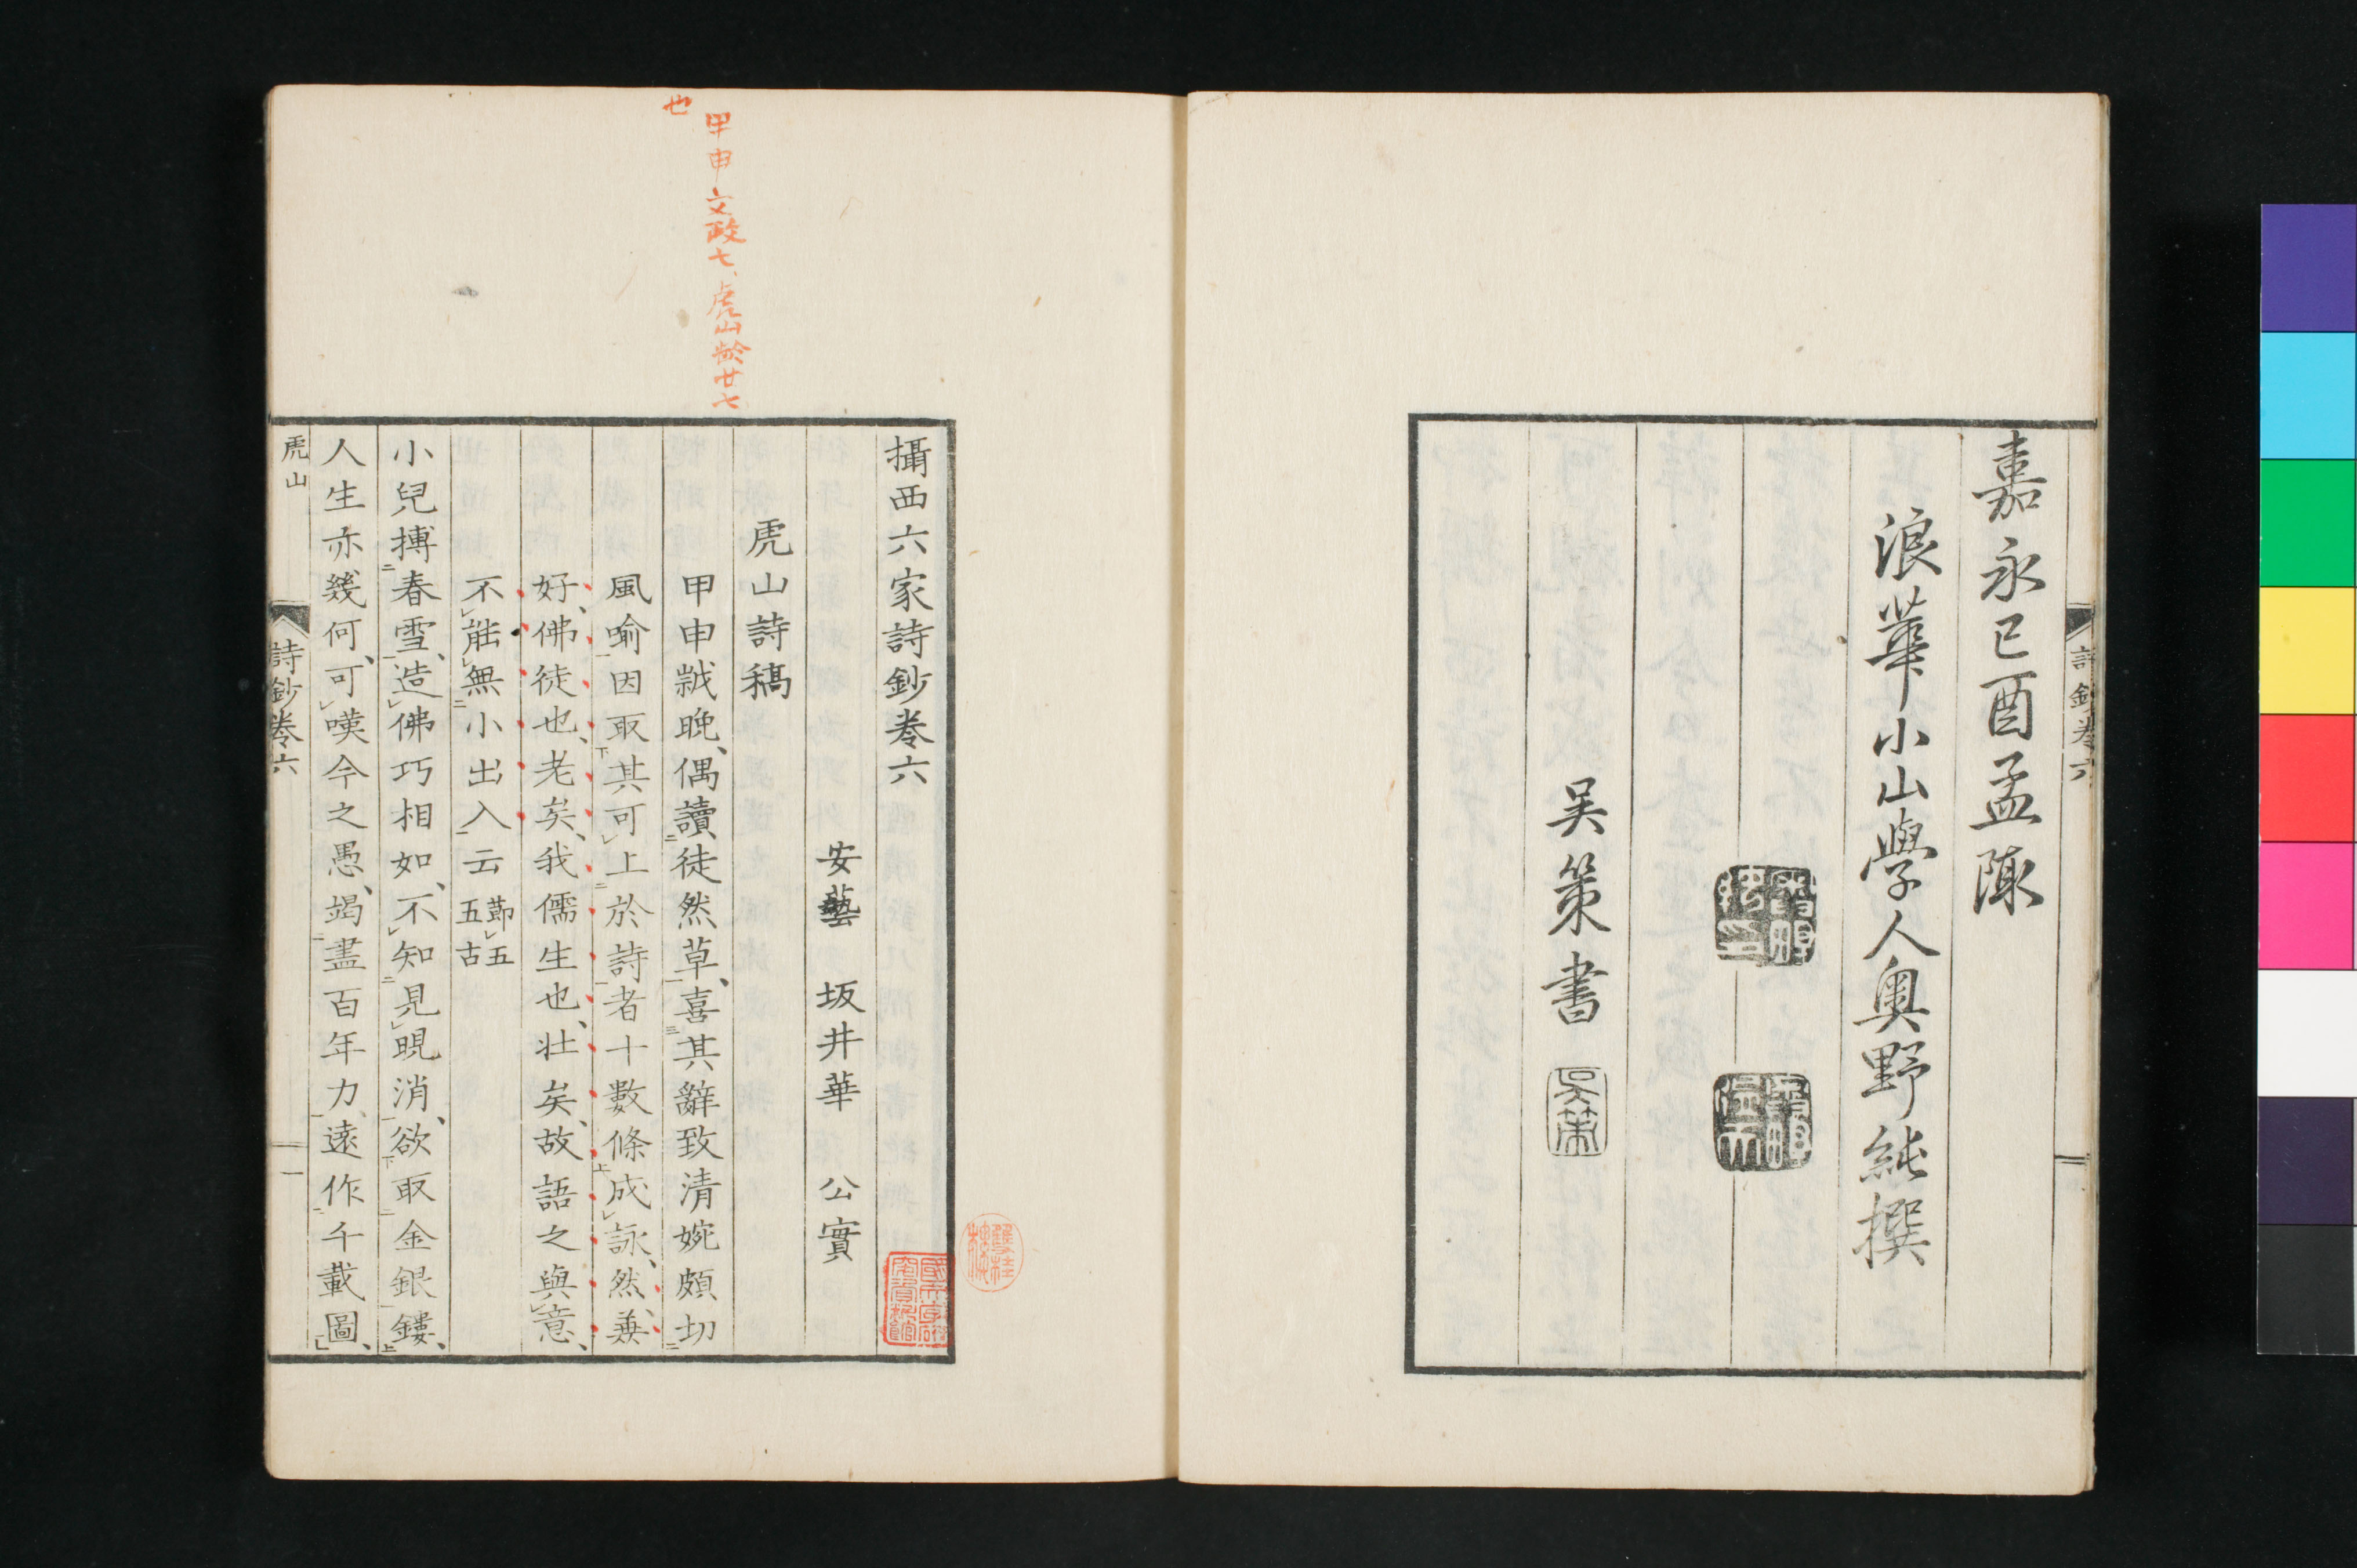 嘉永己酉孟陬
浪華小山學人奥野純撰
吴策書
吴策
詩鈔卷六
攝西六家詩鈔卷六
安藝　坂井華　公實
虎山詩稿
甲申戯晩、偶讀徒然草、喜其辭致清婉頗切
風喻因取其可上於詩者十數條成詠、然兼
好、佛徒也、老矣、我儒生也、壮矣、故語之與意、
不能無小出入云節五五古
小兒搏春雪、造佛巧相如、不知見晛消、欲取金銀鏤、
人生亦幾何、可嘆今之愚、竭盡百年力、遠作千載圖、
虎山
詩鈔卷六
一
甲申文政七、虎山齡廿七
也